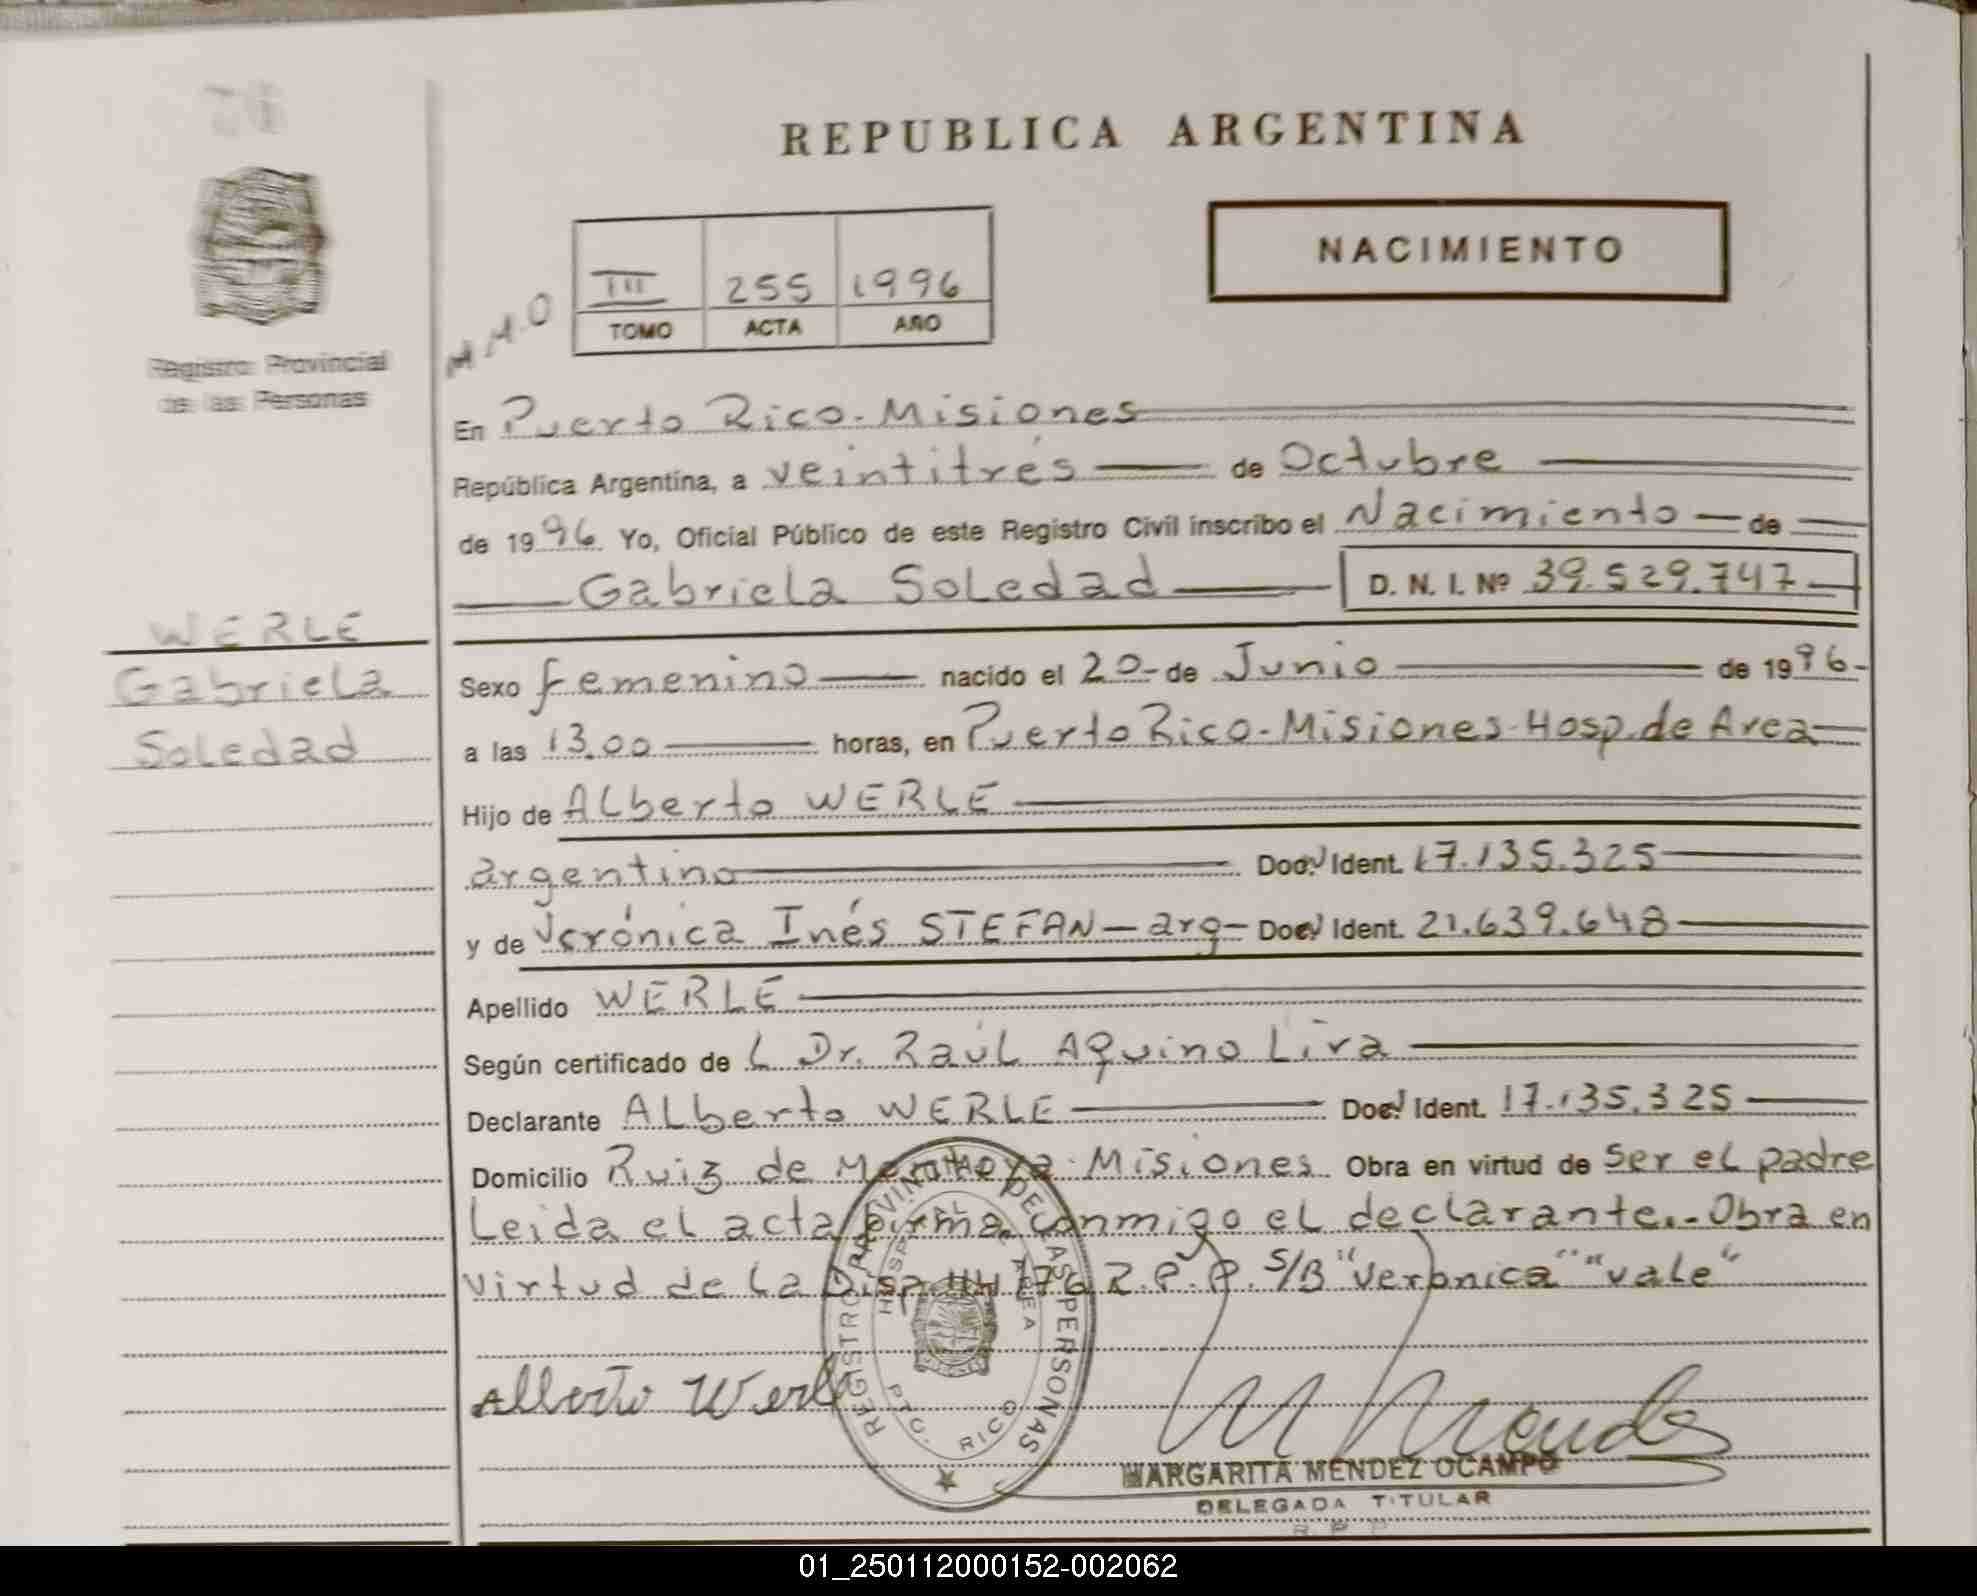 REPUBLICA ARGENTINA
NACIMIENTO
III 255 1996
TOMO ACTA AÑO
M.M.O
Registro Provincial
de las Personas
En Puerto Rico-Misiones
República Argentina, a veintitrés de Octubre
de 1996 Yo, Oficial Público de este Registro Civil inscribo el Nacimiento de
Gabriela Soledad D. N. I. Nº 39.529.747
WERLE
Gabriela
Soledad
Sexo femenino nacido el 20 de Junio de 1996
a las 13.00 horas, en Puerto Rico-Misiones-Hosp. de Area
Hijo de ALberto WERLE
argentino Doc. Ident. 17.135.325
y de Verónica Inés STEFAN - arg - Doc. Ident. 21.639.648
Apellido WERLE
Según certificado de L Dr. Raúl Aquino Lira
Declarante ALberto WERLE Doc. Ident. 17.135.325
Domicilio Ruiz de Montoya-Misiones Obra en virtud de ser el padre
Leida el acta firma conmigo el declarante.-Obra en
virtud de la Disp. 176 R.P.P. S/B "Verónica" "vale"
Alberto Werle
REGISTRO PROVINCIAL DE LAS PERSONAS
HOSPITAL DE AREA
PTO. RICO
M Mendez
MARGARITA MENDEZ OCAMPO
DELEGADA TITULAR
R. P. P.
01_250112000152-002062